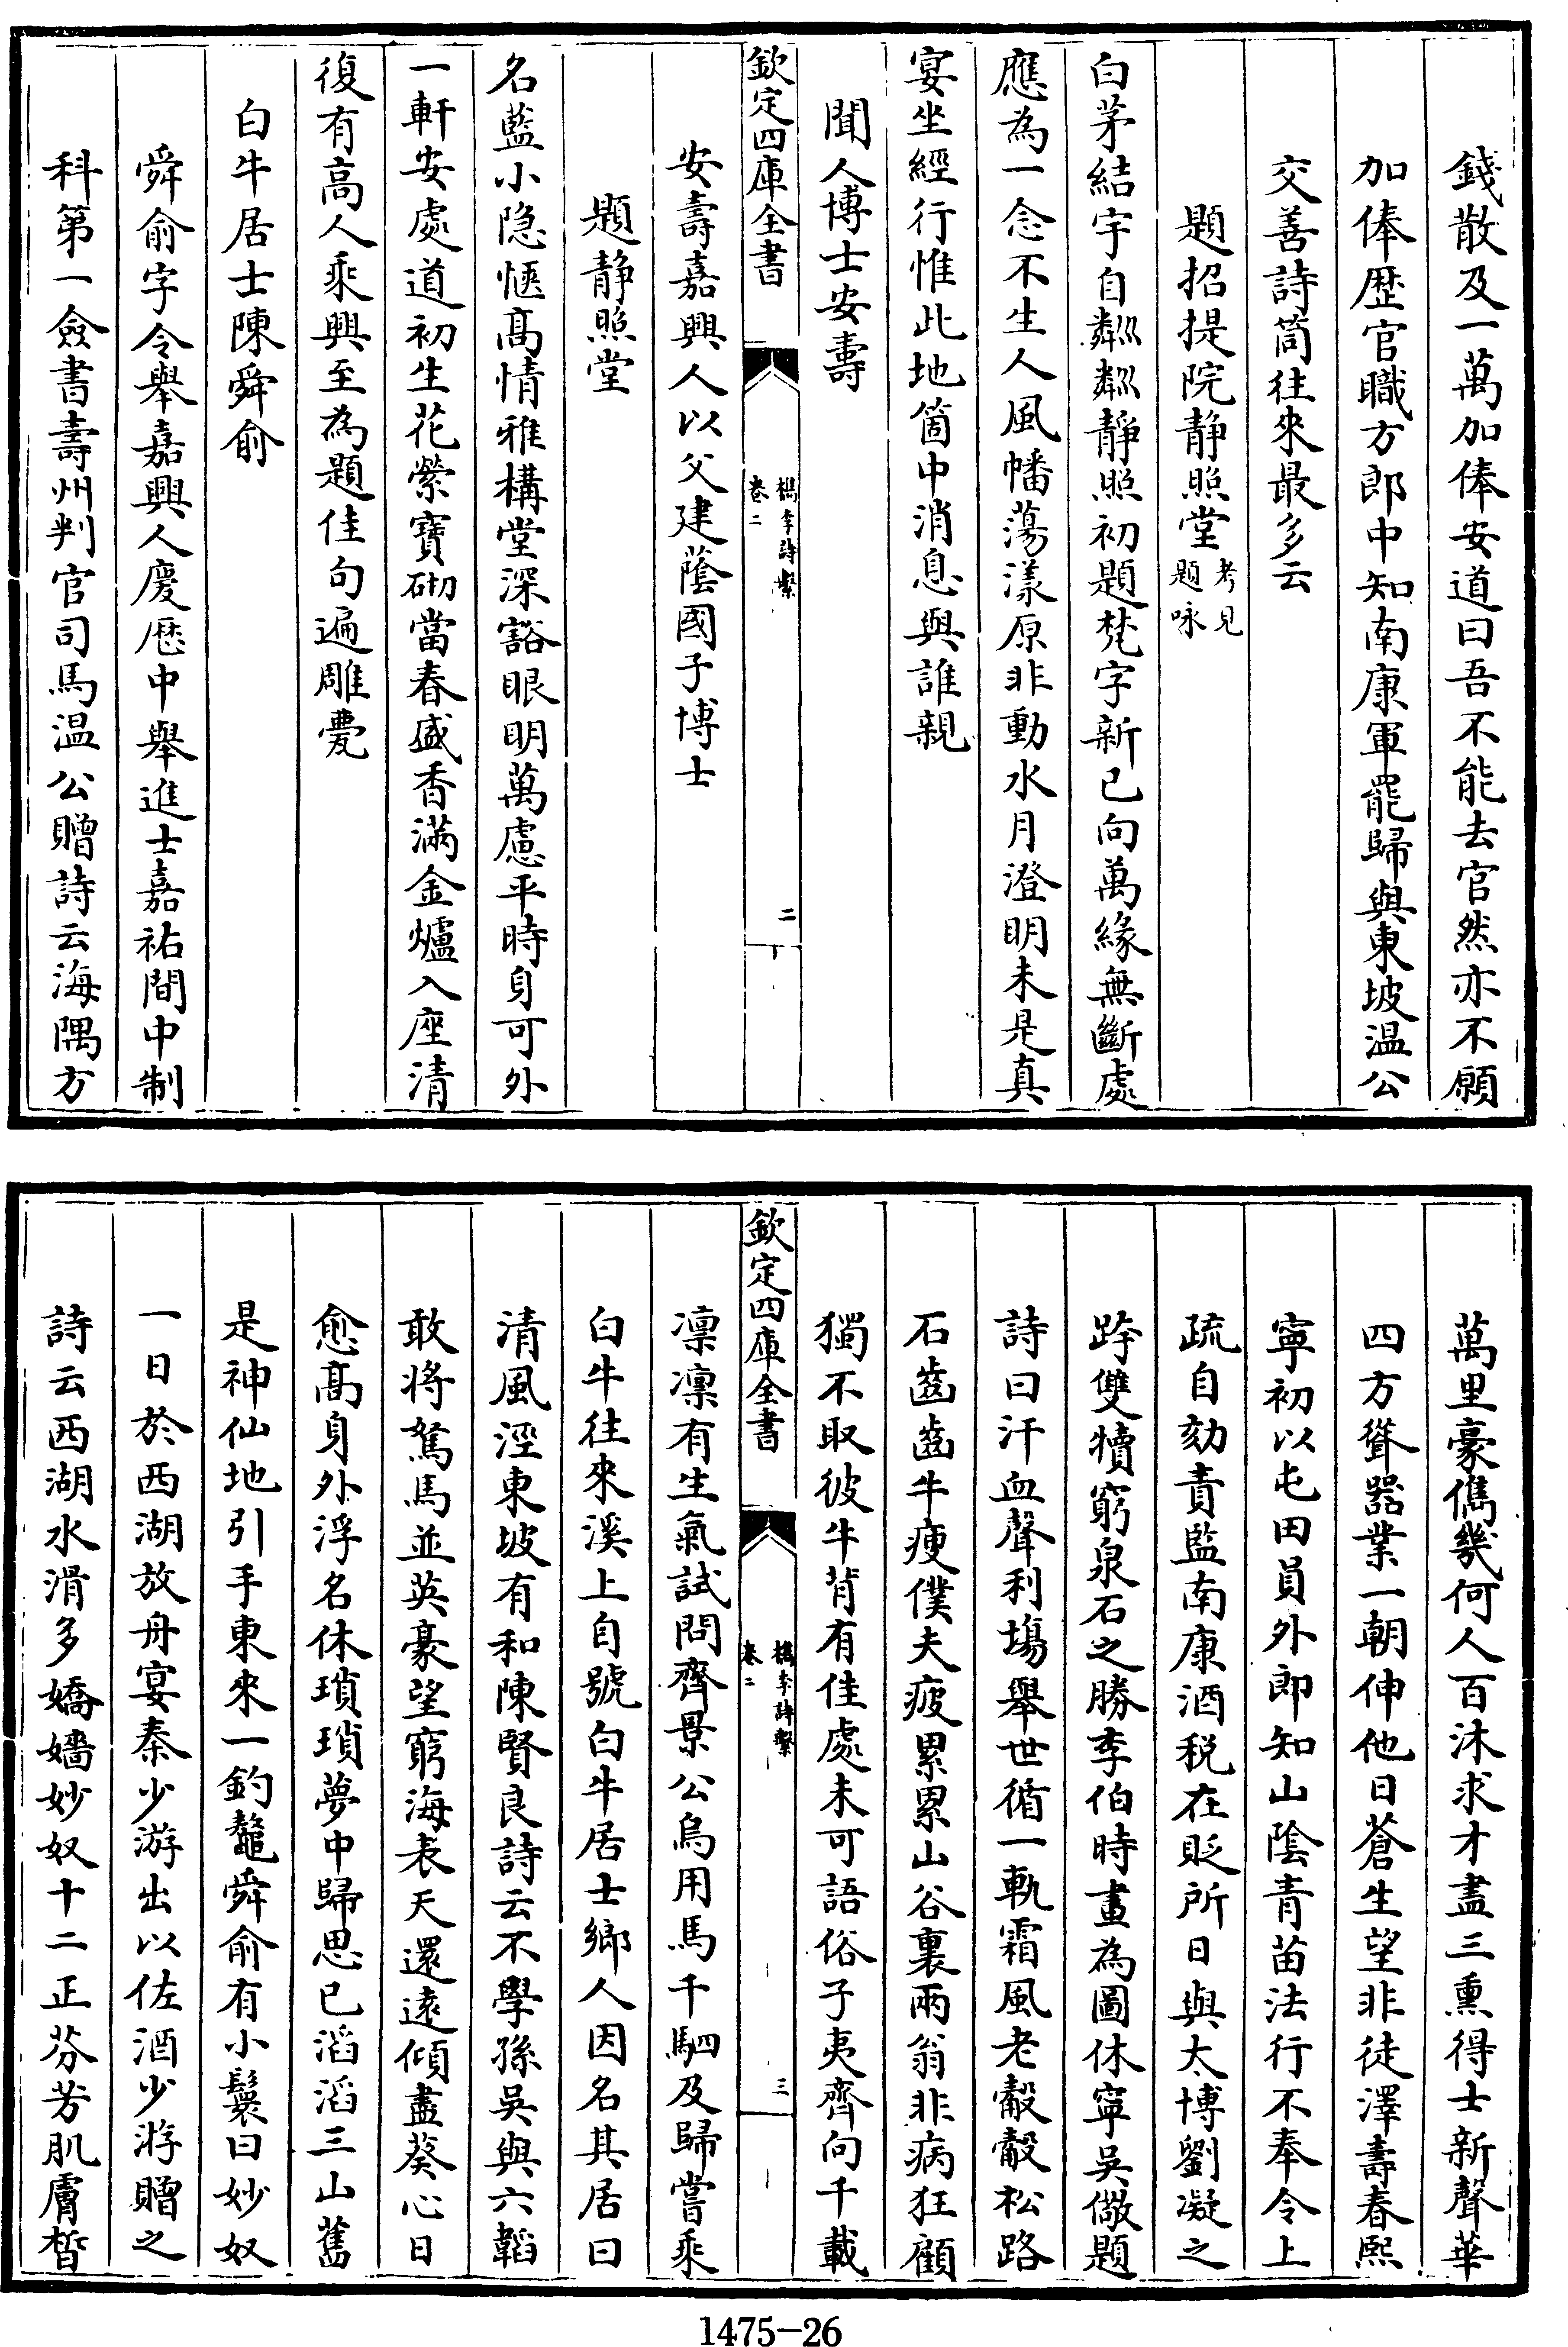 錢散及一萬加俸安道曰吾不能去官然亦不願
加俸歴官職方郎中知南康軍罷歸與東坡温公
交善詩筒往來最多云
題招提院静照堂考見題咏
白茅結宇自粼粼靜照初題梵字新已向萬緣無斷處
應為一念不生人風幡蕩漾原非動水月澄明未是真
宴坐經行惟此地箇中消息與誰親
聞人博士安壽
欽定四庫全書
檇李詩繫
卷二
二
安壽嘉興人以父建蔭國子博士
題靜照堂
名藍小隐愜髙情雅構堂深豁眼明萬慮平時身可外
一軒安處道初生花縈寶砌當春盛香滿金爐入座清
復有高人乘興至為題佳句遍雕甍
白牛居士陳舜俞
舜俞字令舉嘉興人慶厯中舉進士嘉祐間中制
科第一僉書壽州判官司馬温公贈詩云海隅方
萬里豪儁幾何人百沐求才盡三熏得士新聲華
四方聳器業一朝伸他日蒼生望非徒澤壽春熙
寧初以屯田員外郎知山陰青苗法行不奉令上
疏自劾責監南康酒税在貶所日與太博劉凝之
跨雙犢窮泉石之勝李伯時畫為圖休寧吳儆題
詩曰汗血聲利塲舉世循一軌霜風老觳觳松路
石齒齒牛瘦僕夫疲累累山谷裏兩翁非病狂顧
獨不取彼牛背有佳處未可語俗子夷齊向千載
欽定四庫全書
檇李詩繫
卷二
三
凛凛有生氣試問齊景公烏用馬千駟及歸嘗乘
白牛往來溪上自號白牛居士鄉人因名其居曰
清風涇東坡有和陳賢良詩云不學孫吳與六韜
敢將駑馬並英豪望窮海表天還遠傾盡葵心日
愈髙身外浮名休瑣瑣夢中歸思已滔滔三山舊
是神仙地引手東來一釣鼇舜俞有小鬟曰妙奴
一日於西湖放舟宴秦少游出以佐酒少游贈之
詩云西湖水滑多嬌嬙妙奴十二正芬芳肌膚晳
1475-26